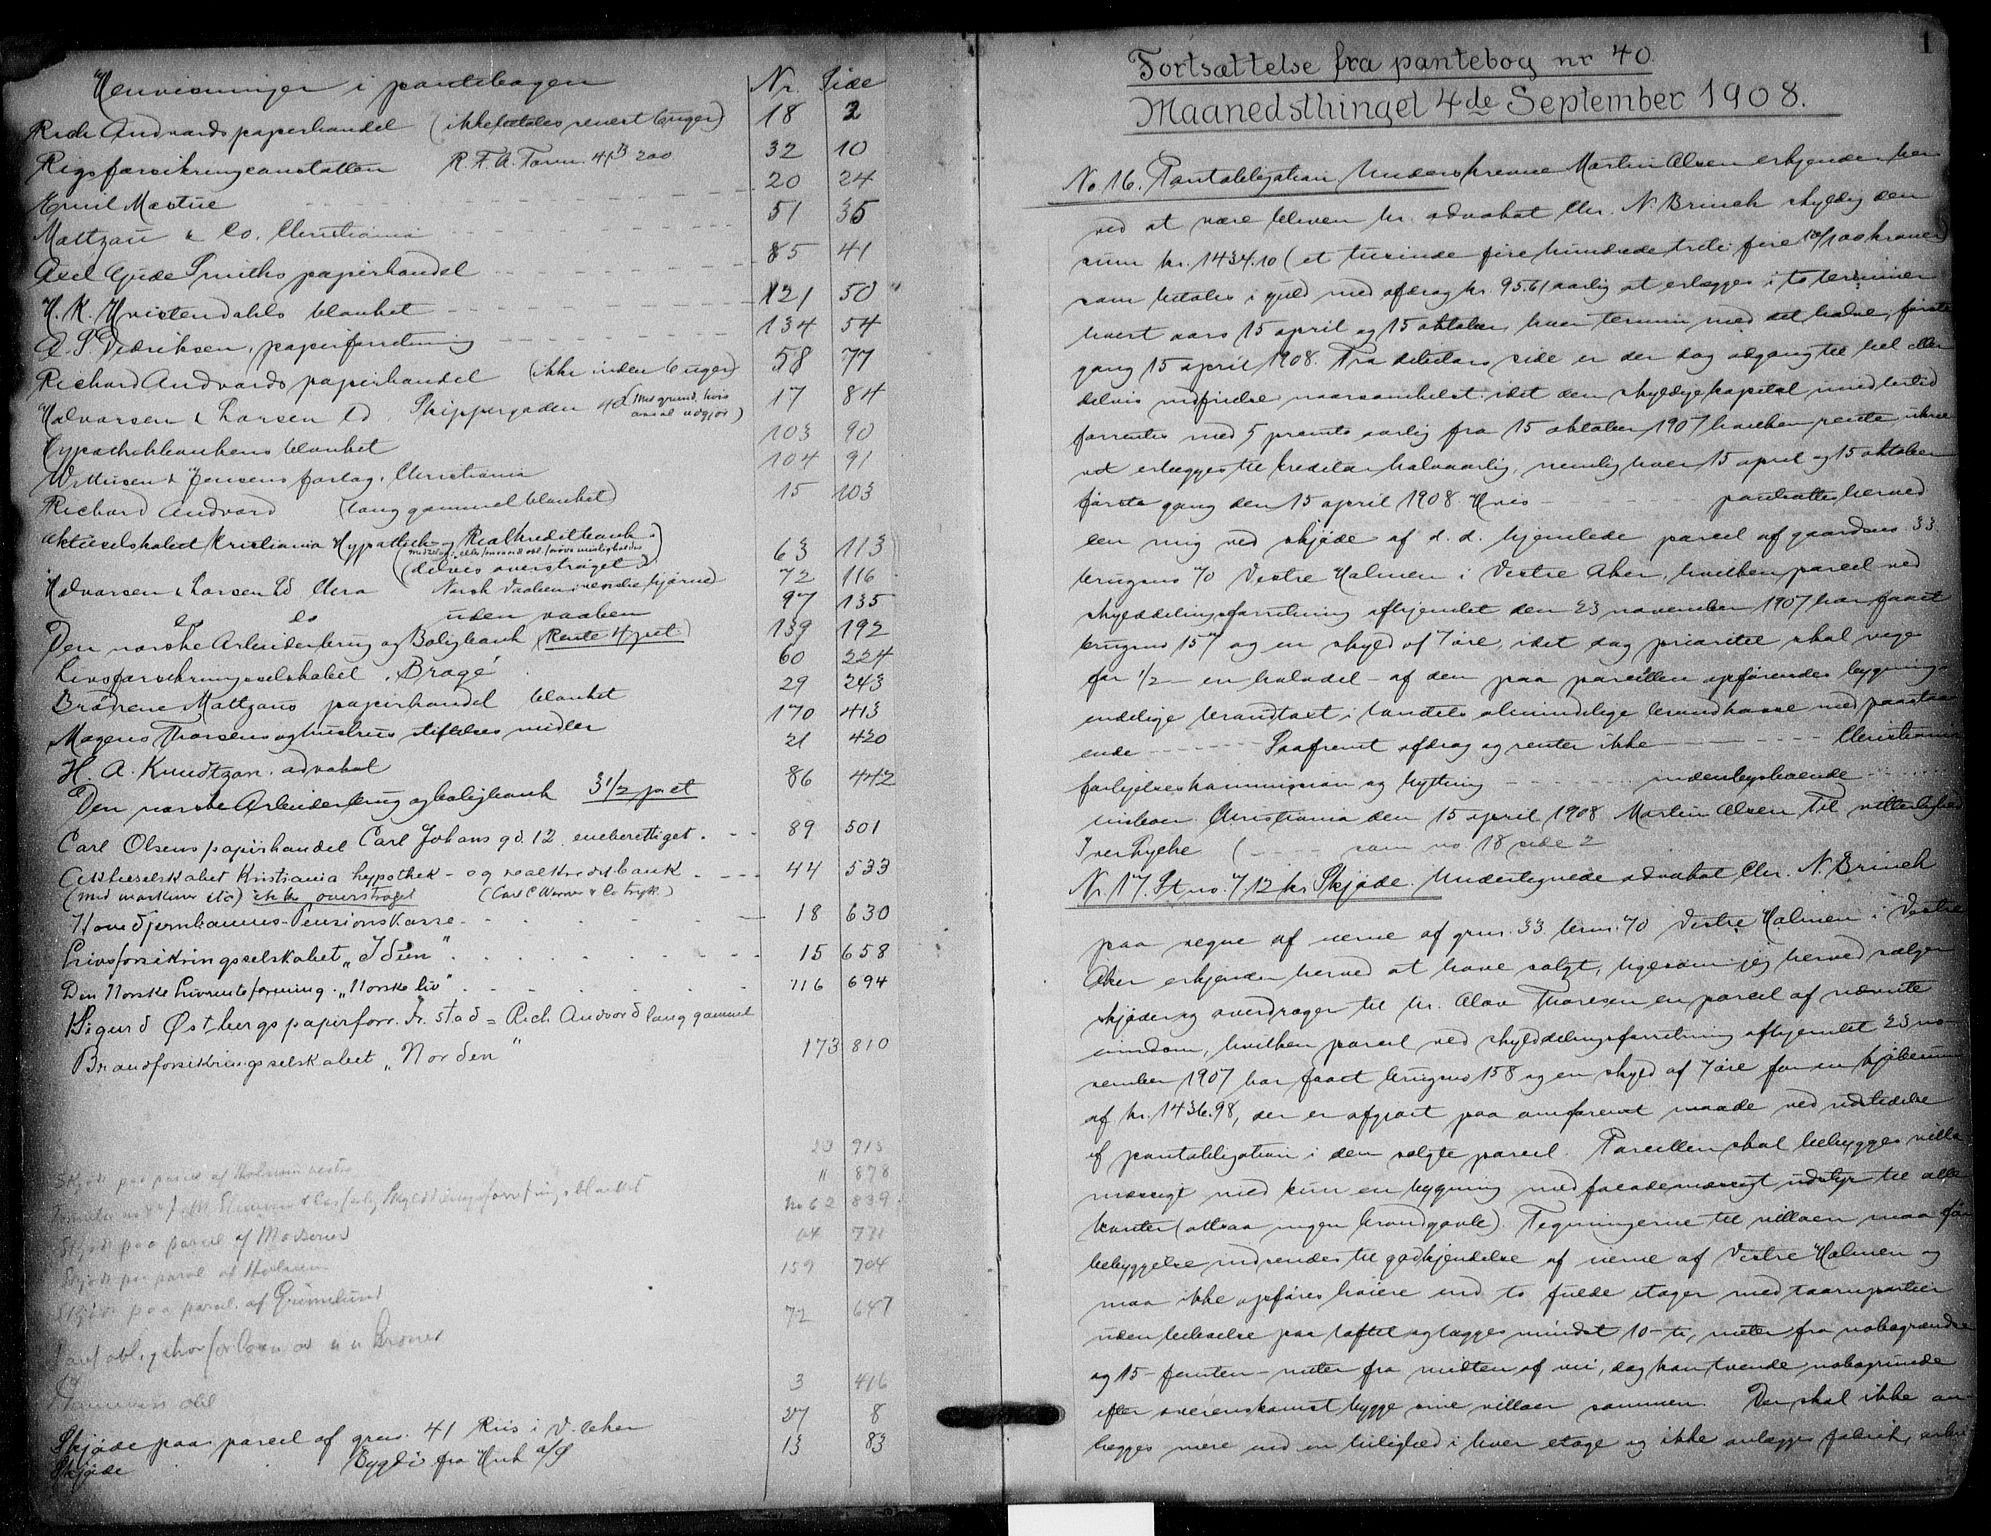 Henvisninger i pantebogen Nr. Side
Rich Andvards papirhandel (ikke betales senest 6 uger) 18 2
Rigsforsikringsanstalten R. F. A. Form. 41B 200 32 10
Emil Mæstue 20 24
Maltzau & Co. Christiania 51 35
Axel Gude Smiths papirhandel 85 41
H. K. Hvistendahls blanket 121 50
Didriksen, papirforretning 134 54
Richard Andvards papirhandel (ikke inden 6 uger) 58 77
Halvorsen & Larsen Ld Skippergaden 40 (Met grund, hvis ansal udgjør) 17 84
Hypothekbankens blanket 103 90
Wittusen & Jensens forlag, Christiania 104 91
Richard Andvord (lang gammel blanket) 15 103
Aktieselskabet Kristiania Hypothek- og Realkreditbank
(delvis overstrøget) 63 113
Halvorsen & Larsen Ld Chra Norsk Vaaben i venstre hjørne 72 116
do do uden vaaben 97 135
Den norske Arbeiderbrug og Boligbank (Rente 4 pct.) 139 192
Livsforsikringsselskabet "Brage" 60 224
Brødrene Maltzaus papirhandel blanket 29 243
Mogens Thorsens og hustrus stiftelses midler 170 413
H. A. Knudtzon, advokat 21 420
Den norske Arbeiderbrug og boligbank 3 1/2 pct 86 442
Carl Olsens papirhandel Carl Johans gd. 12. eneberettiget 89 501
Aktieselskabet Kristiania hypothek- og realkreditbank 44 533
(med maskiner etc) ikke overstrøget (Carl C Werner & Co tryk)
Hovedjernbanens Pensionskasse 18 630
Livsforsikringsselskabet "Idun" 15 658
Den Norske Livrenteforening "Norske liv" 116 694
Sigurd Østbergs papirforr. Fr.stad = Rich. Andvord lang gammel
Brandforsikringsselskabet "Norden" 173 810
20 915
Skjøde paa parcel af Holmen vestre " 878
No 62 839
Skjøde paa parcel af 771
Skjøde paa parcel af Holmen 159 704
Skjøde paa parcel af Grimelund 72 647
Pantobligation for
obl 3 416
Skjøde paa parcel af grno. 41 Riis i V. Aker 27 8
Skjøde Bygdø fra 13 83
1
Fortsættelse fra pantebog nr 40.
Maanedsthinget 4de September 1908.
No 16. Pantobligation. Underskrevne Martin Olsen erkjender her-
ved at være bleven hr. advokat Chr. N. Brinch skyldig den
sum kr. 1434.10 (et tusinde fire hundrede treti fire 10/100 kroner)
som betales i guld med afdrag kr. 95.61 aarlig at erlægges i to terminer
hvert aars 15 april og 15 oktober, hver termin med det halve, første
gang 15 april 1908. Fra debitors side er der dog adgang til hel eller
delvis indfrielse naarsomhelst idet den skyldige kapital imidlertid
forrentes med 5 procents aarlig fra 15 oktober 1907 hvilken rente
erlægges til kreditor halvaarlig, nemlig hver 15 april og 15 oktober
første gang den 15 april 1908. Hvis - - - pantsættes herved
den mig ved skjøde af d. d. hjemlede parcel af gaardens 33
brugsno 70 Vestre Holmen i Vestre Aker, hvilken parcel ved
skylddelingsforretning afhjemlet den 23 november 1907 har faaet
brugsno 157 og en skyld af 7 øre, idet dog prioritet skal vige
for 1/2 - en halvdel - af den paa parcellen opførendes bygnings
endelige brandtaxt i landets almindelige brandkasse med paastaa-
ende - - - Saafremt afdrag og renter ikke - - - Christiania
forligelseskommission og bytting - - - udenbysboende - - -
Christiania den 15 april 1908 Martin Olsen Til vitterlighed
Iver Lycke ( - - - som no 18 side 2
Nr. 17. St. no. 712 kr Skjøde. Undertegnede advokat Chr. N. Brinch
paa vegne af eierne af grno. 33 brno. 70 Vestre Holmen i Vestre
Aker erkjender herved at have solgt, ligesom jeg herved sælger
skjøder og overdrager til hr. Olav Thoresen en parcel af nævnte
eiendom, hvilken parcel ved skylddelingsforretning afhjemlet 23 no-
vember 1907 har faaet brugsno 158 og en skyld af 7 øre for en kjøbesum
af kr. 1436.98, der er afgjort paa omforenet maade ved udstedelse
af pantobligation i den solgte parcel. Parcellen skal bebygges villa-
mæssigt med kun en bygning med facademæssigt udstyr til alle
kanter (altsaa ingen brandgavle). Tegningerne til villaen maa før
bebyggelse indsendes til godkjendelse af eierne af Vestre Holmen og
maa ikke opføres høiere end to fulde etager med taarnpartier
uden beboelse paa loftet og lægges mindst 10-ti, meter fra nabogrændse
og 15-femten-meter fra midten af vei, dog kan tvende nabogrunde
efter overenskomst bygge sine villaer sammen. Der skal ikke an-
lægges mere end en leilighed i hver etage og ikke anlægges fabrik,